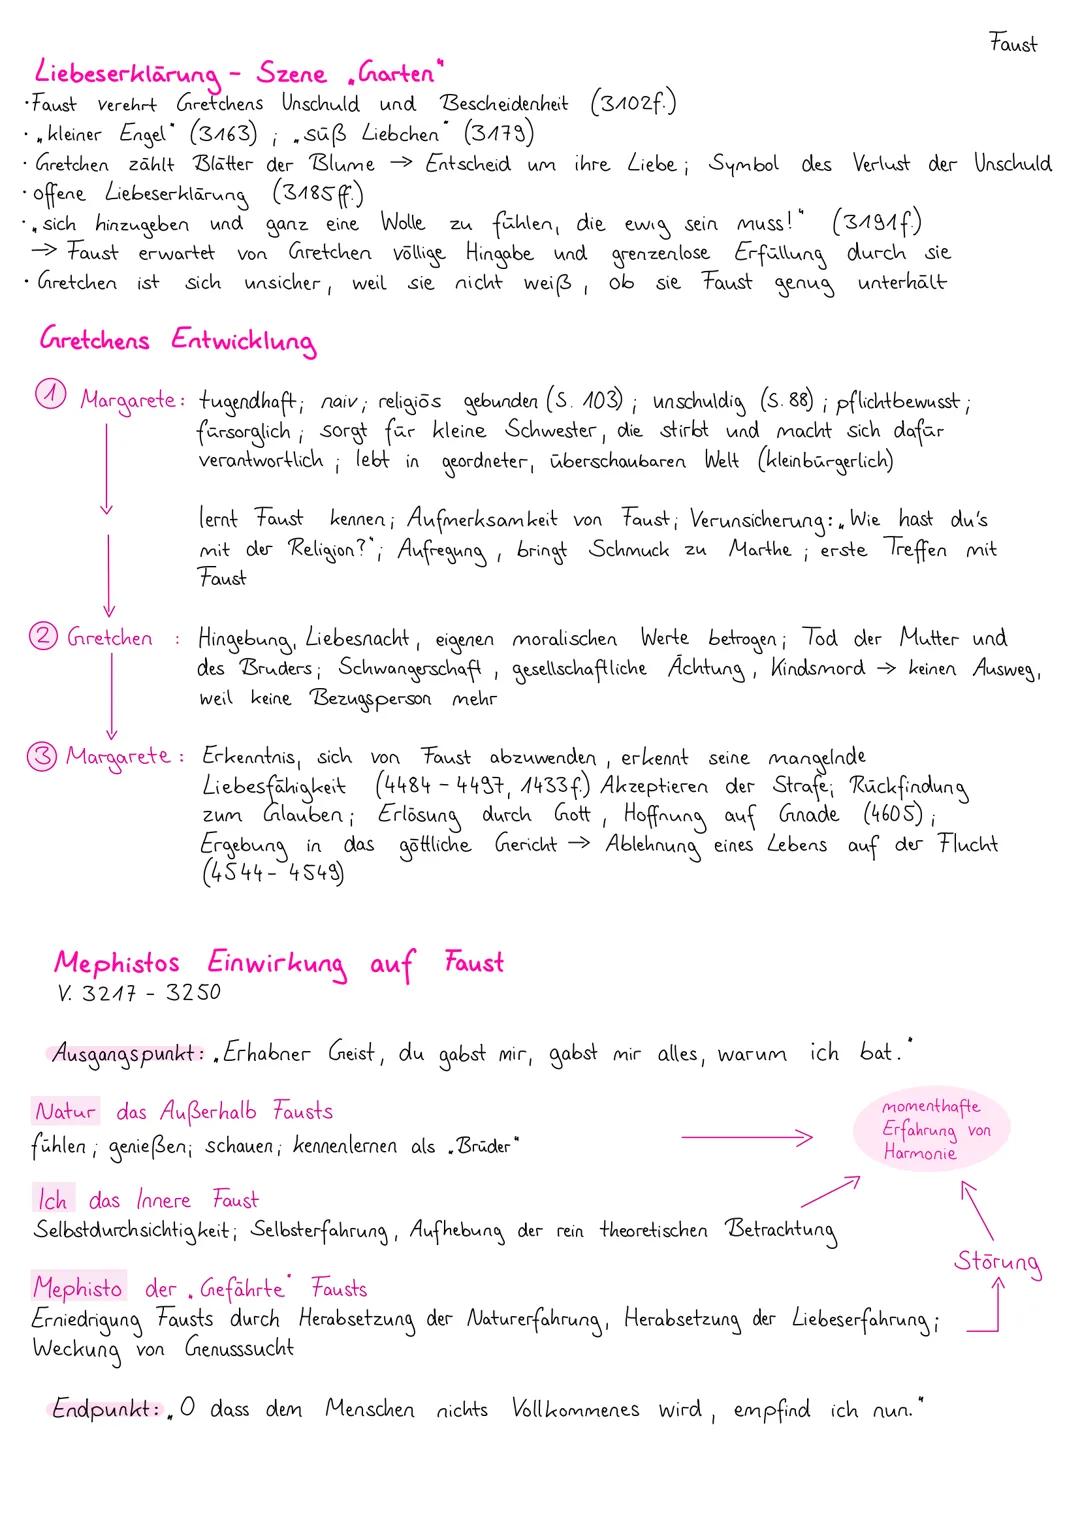 Faust
Liebeserklärung - Szene „Garten"
· Faust verehrt Gretchens Unschuld und Bescheidenheit (3102f.)
· „kleiner Engel" (3163) ; „süß Liebchen" (3179)
· Gretchen zählt Blätter der Blume → Entscheid um ihre Liebe ; Symbol des Verlust der Unschuld
· offene Liebeserklärung (3185ff.)
· „sich hinzugeben und ganz eine Wolle zu fühlen, die ewig sein muss!" (3191f.)
→ Faust erwartet von Gretchen völlige Hingabe und grenzenlose Erfüllung durch sie
· Gretchen ist sich unsicher, weil sie nicht weiß, ob sie Faust genug unterhält
Gretchens Entwicklung
① Margarete: tugendhaft; naiv; religiös gebunden (S. 103) ; unschuldig (S. 88) ; pflichtbewusst ;
fürsorglich ; sorgt für kleine Schwester, die stirbt und macht sich dafür
verantwortlich ; lebt in geordneter, überschaubaren Welt (kleinbürgerlich)
lernt Faust kennen; Aufmerksamkeit von Faust; Verunsicherung: „Wie hast du's
mit der Religion?"; Aufregung, bringt Schmuck zu Marthe ; erste Treffen mit
Faust
② Gretchen : Hingebung, Liebesnacht, eigenen moralischen Werte betrogen; Tod der Mutter und
des Bruders; Schwangerschaft, gesellschaftliche Ächtung, Kindsmord → keinen Ausweg,
weil keine Bezugsperson mehr
③ Margarete : Erkenntnis, sich von Faust abzuwenden, erkennt seine mangelnde
Liebesfähigkeit (4484 - 4497, 1433f.) Akzeptieren der Strafe; Rückfindung
zum Glauben; Erlösung durch Gott, Hoffnung auf Gnade (4605) ;
Ergebung in das göttliche Gericht → Ablehnung eines Lebens auf der Flucht
(4544 - 4549)
Mephistos Einwirkung auf Faust
V. 3217 - 3250
Ausgangspunkt: „Erhabner Geist, du gabst mir, gabst mir alles, warum ich bat."
Natur das Außerhalb Fausts
fühlen ; genießen; schauen; kennenlernen als „Brüder"
momenthafte
Erfahrung von
Harmonie
Ich das Innere Faust
Selbstdurchsichtigkeit; Selbsterfahrung, Aufhebung der rein theoretischen Betrachtung
Störung
Mephisto der „Gefährte" Fausts
Erniedrigung Fausts durch Herabsetzung der Naturerfahrung, Herabsetzung der Liebeserfahrung;
Weckung von Genusssucht
Endpunkt: „O dass dem Menschen nichts Vollkommenes wird, empfind ich nun."